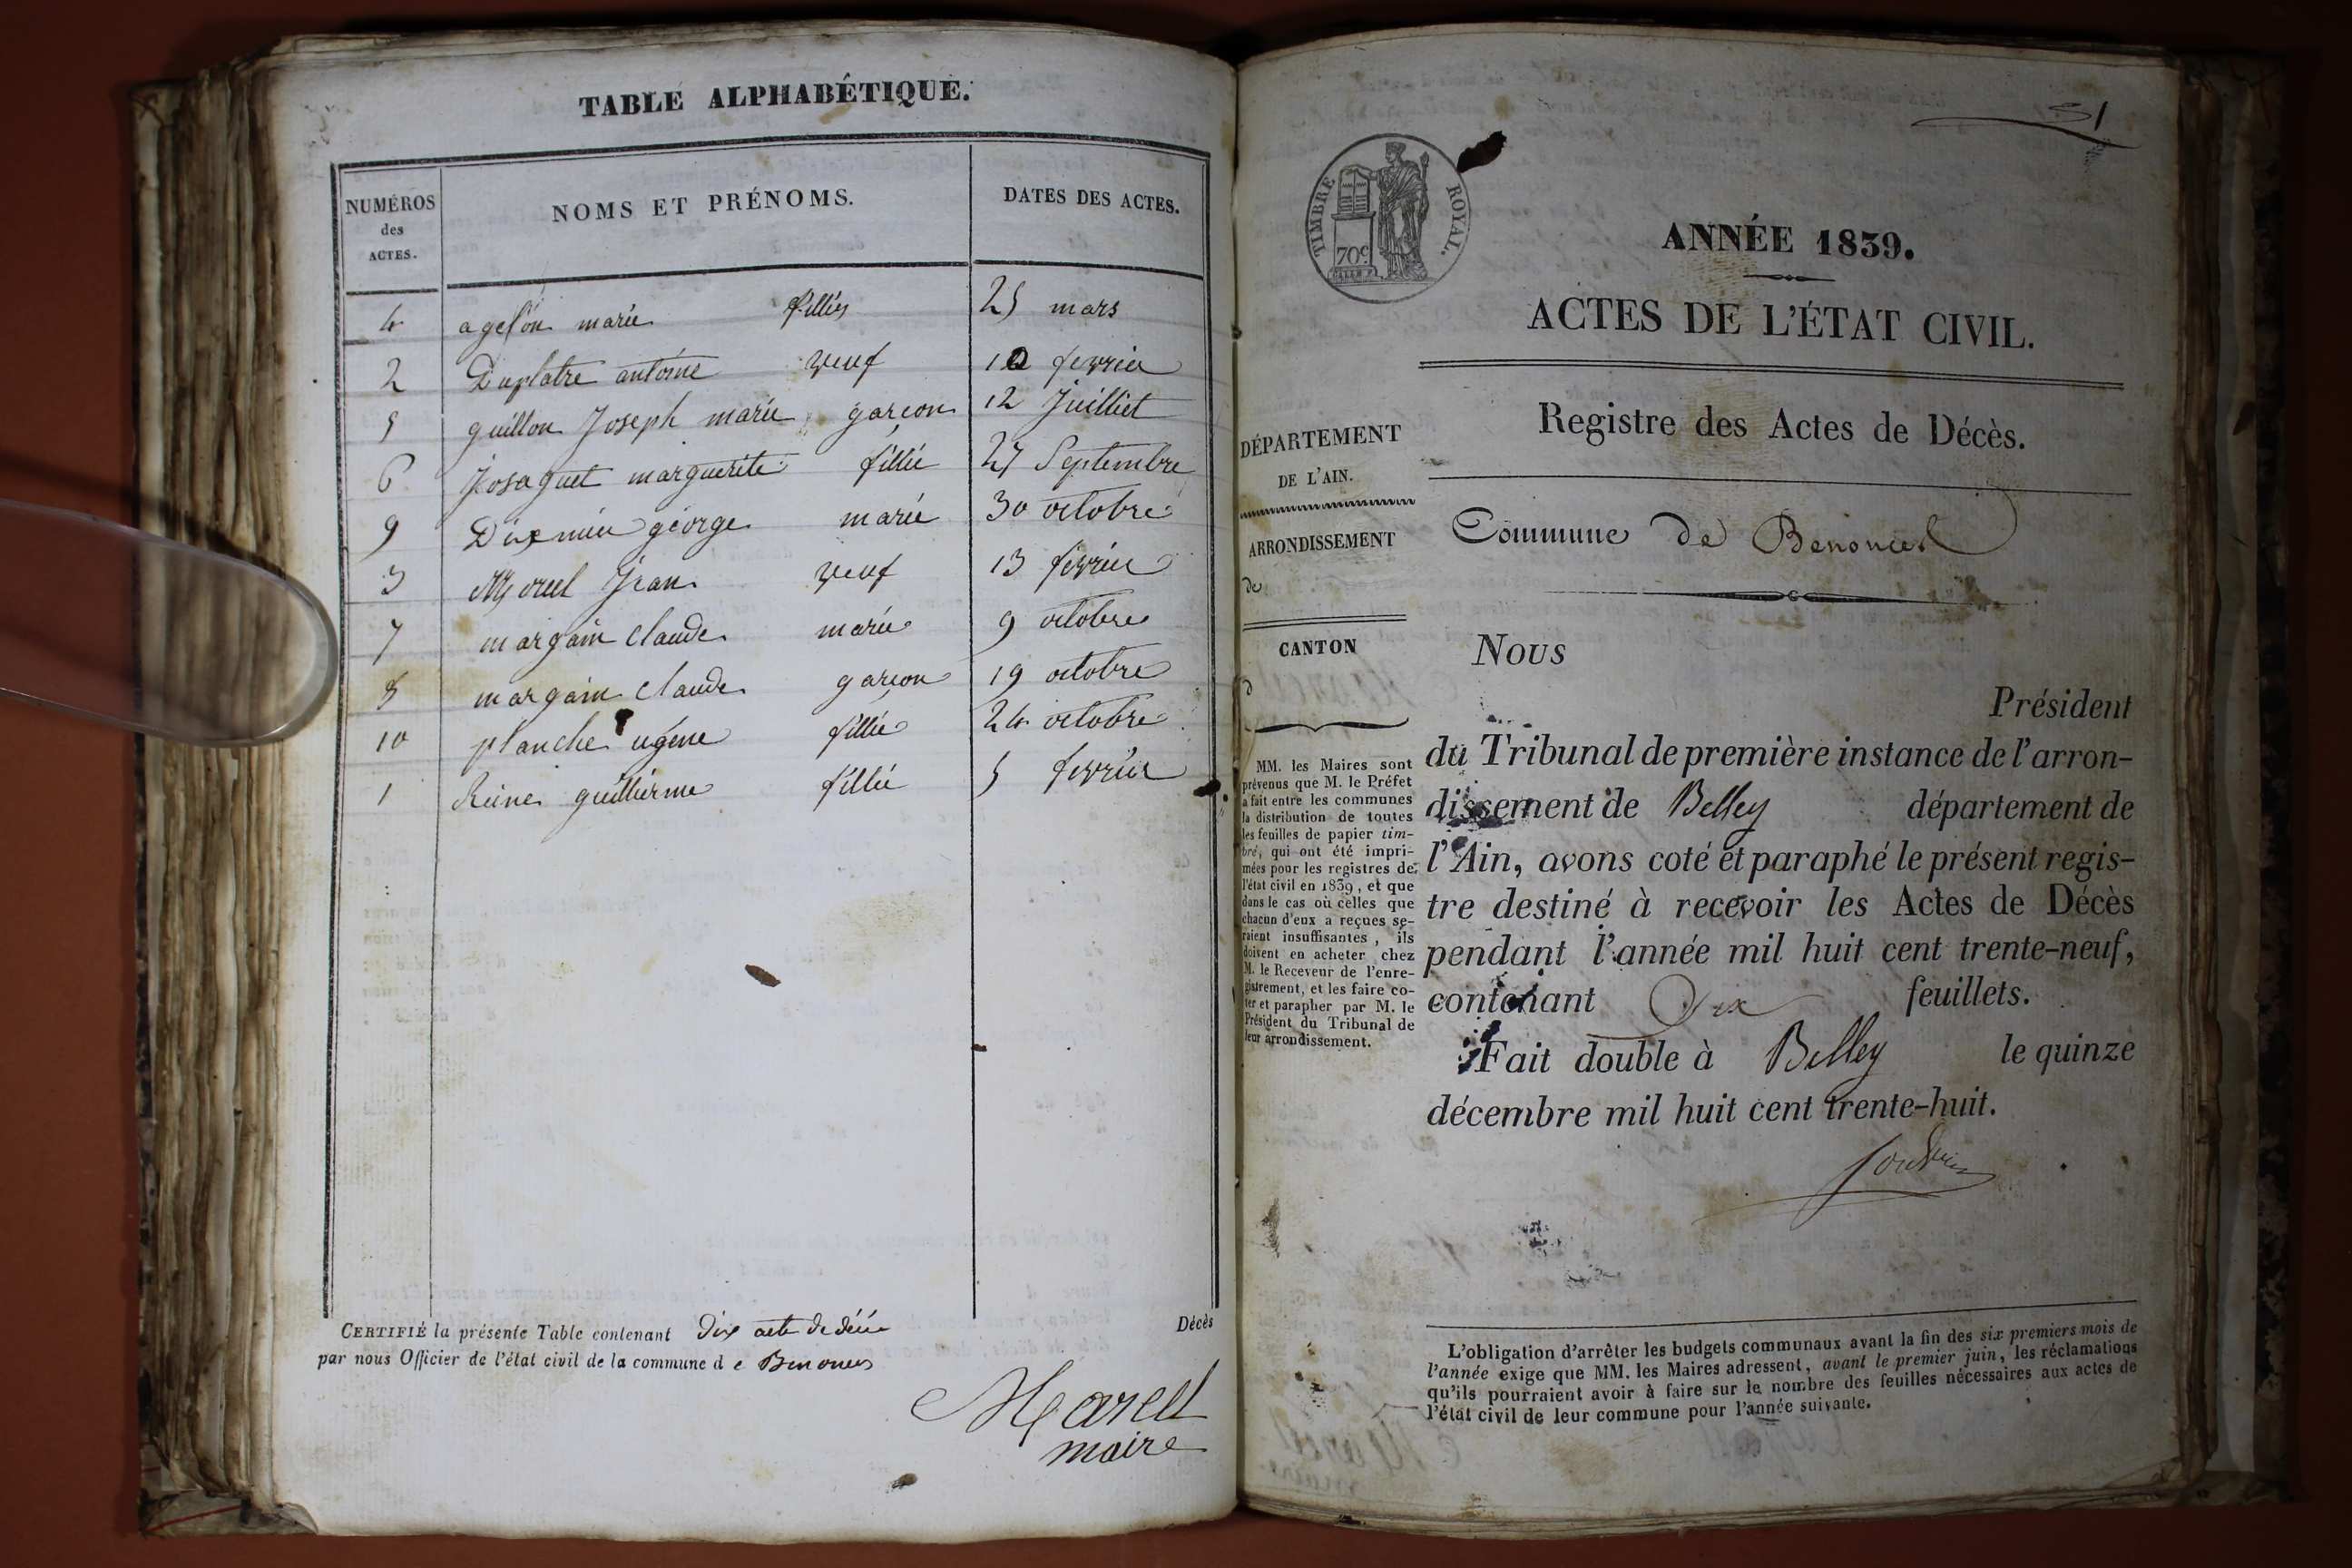 TABLE ALPHABÉTIQUE.
NUMÉROS des ACTES. NOMS ET PRÉNOMS. DATES DES ACTES.
4 agelon marie fillies 25 mars
2 Duplatre antoine veuf 10 fevrier
5 guillon Joseph marie garcon 12 Juilliet
6 Josaquet marguerite fillie 27 Septembre
9 george marié 30 octobre
3 Morel Jean veuf 13 fevrier
7 margain Claude marié 9 octobre
8 margain Claude garcon 19 octobre
10 planche ugene fillie 24 octobre
1 Reine guillierme fillie 5 fevrier
CERTIFIÉ la présente Table contenant dix acte de décé Décès
par nous Officier de l'état civil de la commune de Benonces
Marcel
maire
51
TIMBRE ROYAL.
70c
ANNÉE 1839.
ACTES DE L'ÉTAT CIVIL.
Registre des Actes de Décès.
DÉPARTEMENT
DE L'AIN.
ARRONDISSEMENT
de
CANTON
d
MM. les Maires sont
prévenus que M. le Préfet
a fait entre les communes
la distribution de toutes
les feuilles de papier tim-
bré, qui ont été impri-
mées pour les registres de
l'état civil en 1839, et que
dans le cas où celles que
chacun d'eux a reçues se-
raient insuffisantes, ils
doivent en acheter chez
M. le Receveur de l'enre-
gistrement, et les faire co-
ter et parapher par M. le
Président du Tribunal de
leur arrondissement.
Commune de Benonces
Nous
Président
du Tribunal de première instance de l'arron-
dissement de Belley département de
l'Ain, avons coté et paraphé le présent regis-
tre destiné à recevoir les Actes de Décès
pendant l'année mil huit cent trente-neuf,
contenant Dix feuillets.
Fait double à Belley le quinze
décembre mil huit cent trente-huit.
L'obligation d'arrêter les budgets communaux avant la fin des six premiers mois de
l'année exige que MM. les Maires adressent, avant le premier juin, les réclamations
qu'ils pourraient avoir à faire sur le nombre des feuilles nécessaires aux actes de
l'état civil de leur commune pour l'année suivante.